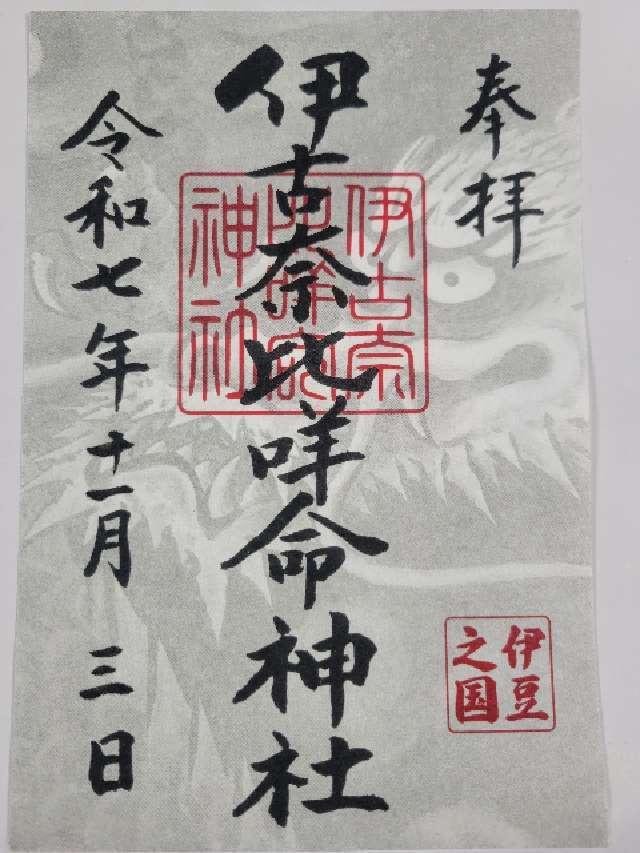 奉拝
伊古奈比咩命神社
伊古奈
比咩命
神社
伊豆
之国
令和七年十一月 三日